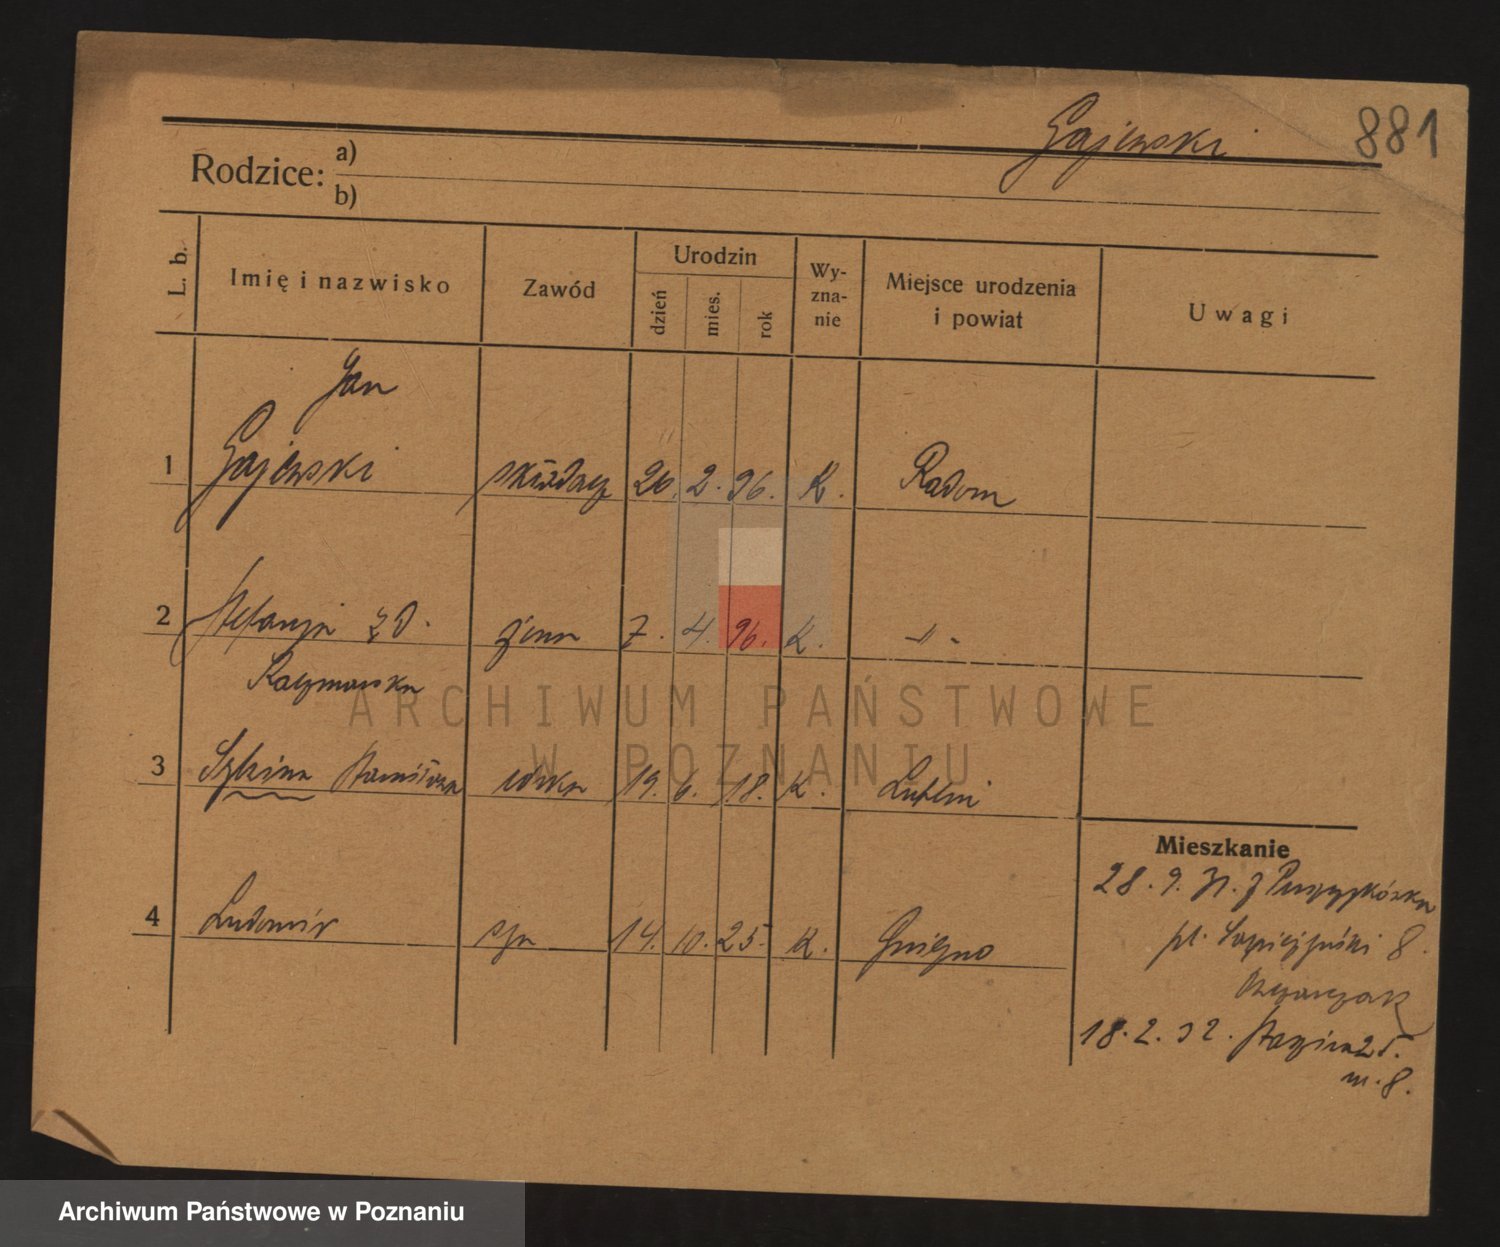 Gajewski 881
Rodzice: a)
b)
L. b. Imię i nazwisko Zawód Urodzin dzień mies. rok Wyznanie Miejsce urodzenia i powiat Uwagi
Jan
1 Gajewski składacz 20. 2. 96. K. Radom
2 Stefanja zd. żona 7. 4. 96. K. -"-
Kaczmarska
3 Stanisława córka 19. 6. 18. K. Lublin
Mieszkanie
28. 9. 31. z Puszczykówka
4 Ludomir syn 14. 10. 25. K. Gniezno
pl. Sapieżyński 8.
18. 2. 32.
m. 8.
ARCHIWUM PAŃSTWOWE
W POZNANIU
Archiwum Państwowe w Poznaniu